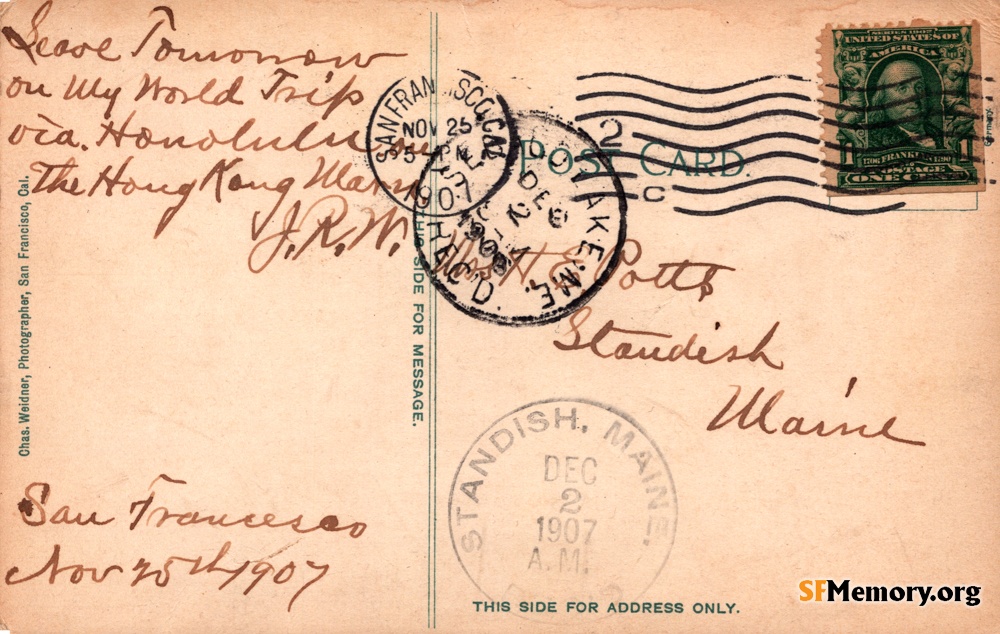 Leave Tomorrow
on My World Trip
via. Honolulu on
The Hong Kong Maru
J.R.W.
San Francesco
Nov 25th 1907
Chas. Weidner, Photographer, San Francisco, Cal.
THIS SIDE FOR MESSAGE.
POST CARD.
SAN FRANCISCO, CAL.
NOV 25
1907
2
C
LAKE, ME.
DEC
2
REC'D.
SERIES 1902
UNITED STATES OF
AMERICA
1 1
1706 FRANKLIN 1790
POSTAGE
ONE CENT
Germany
H E Potts
Standish
Maine
STANDISH, MAINE.
DEC
2
1907
A.M.
THIS SIDE FOR ADDRESS ONLY.
SFMemory.org